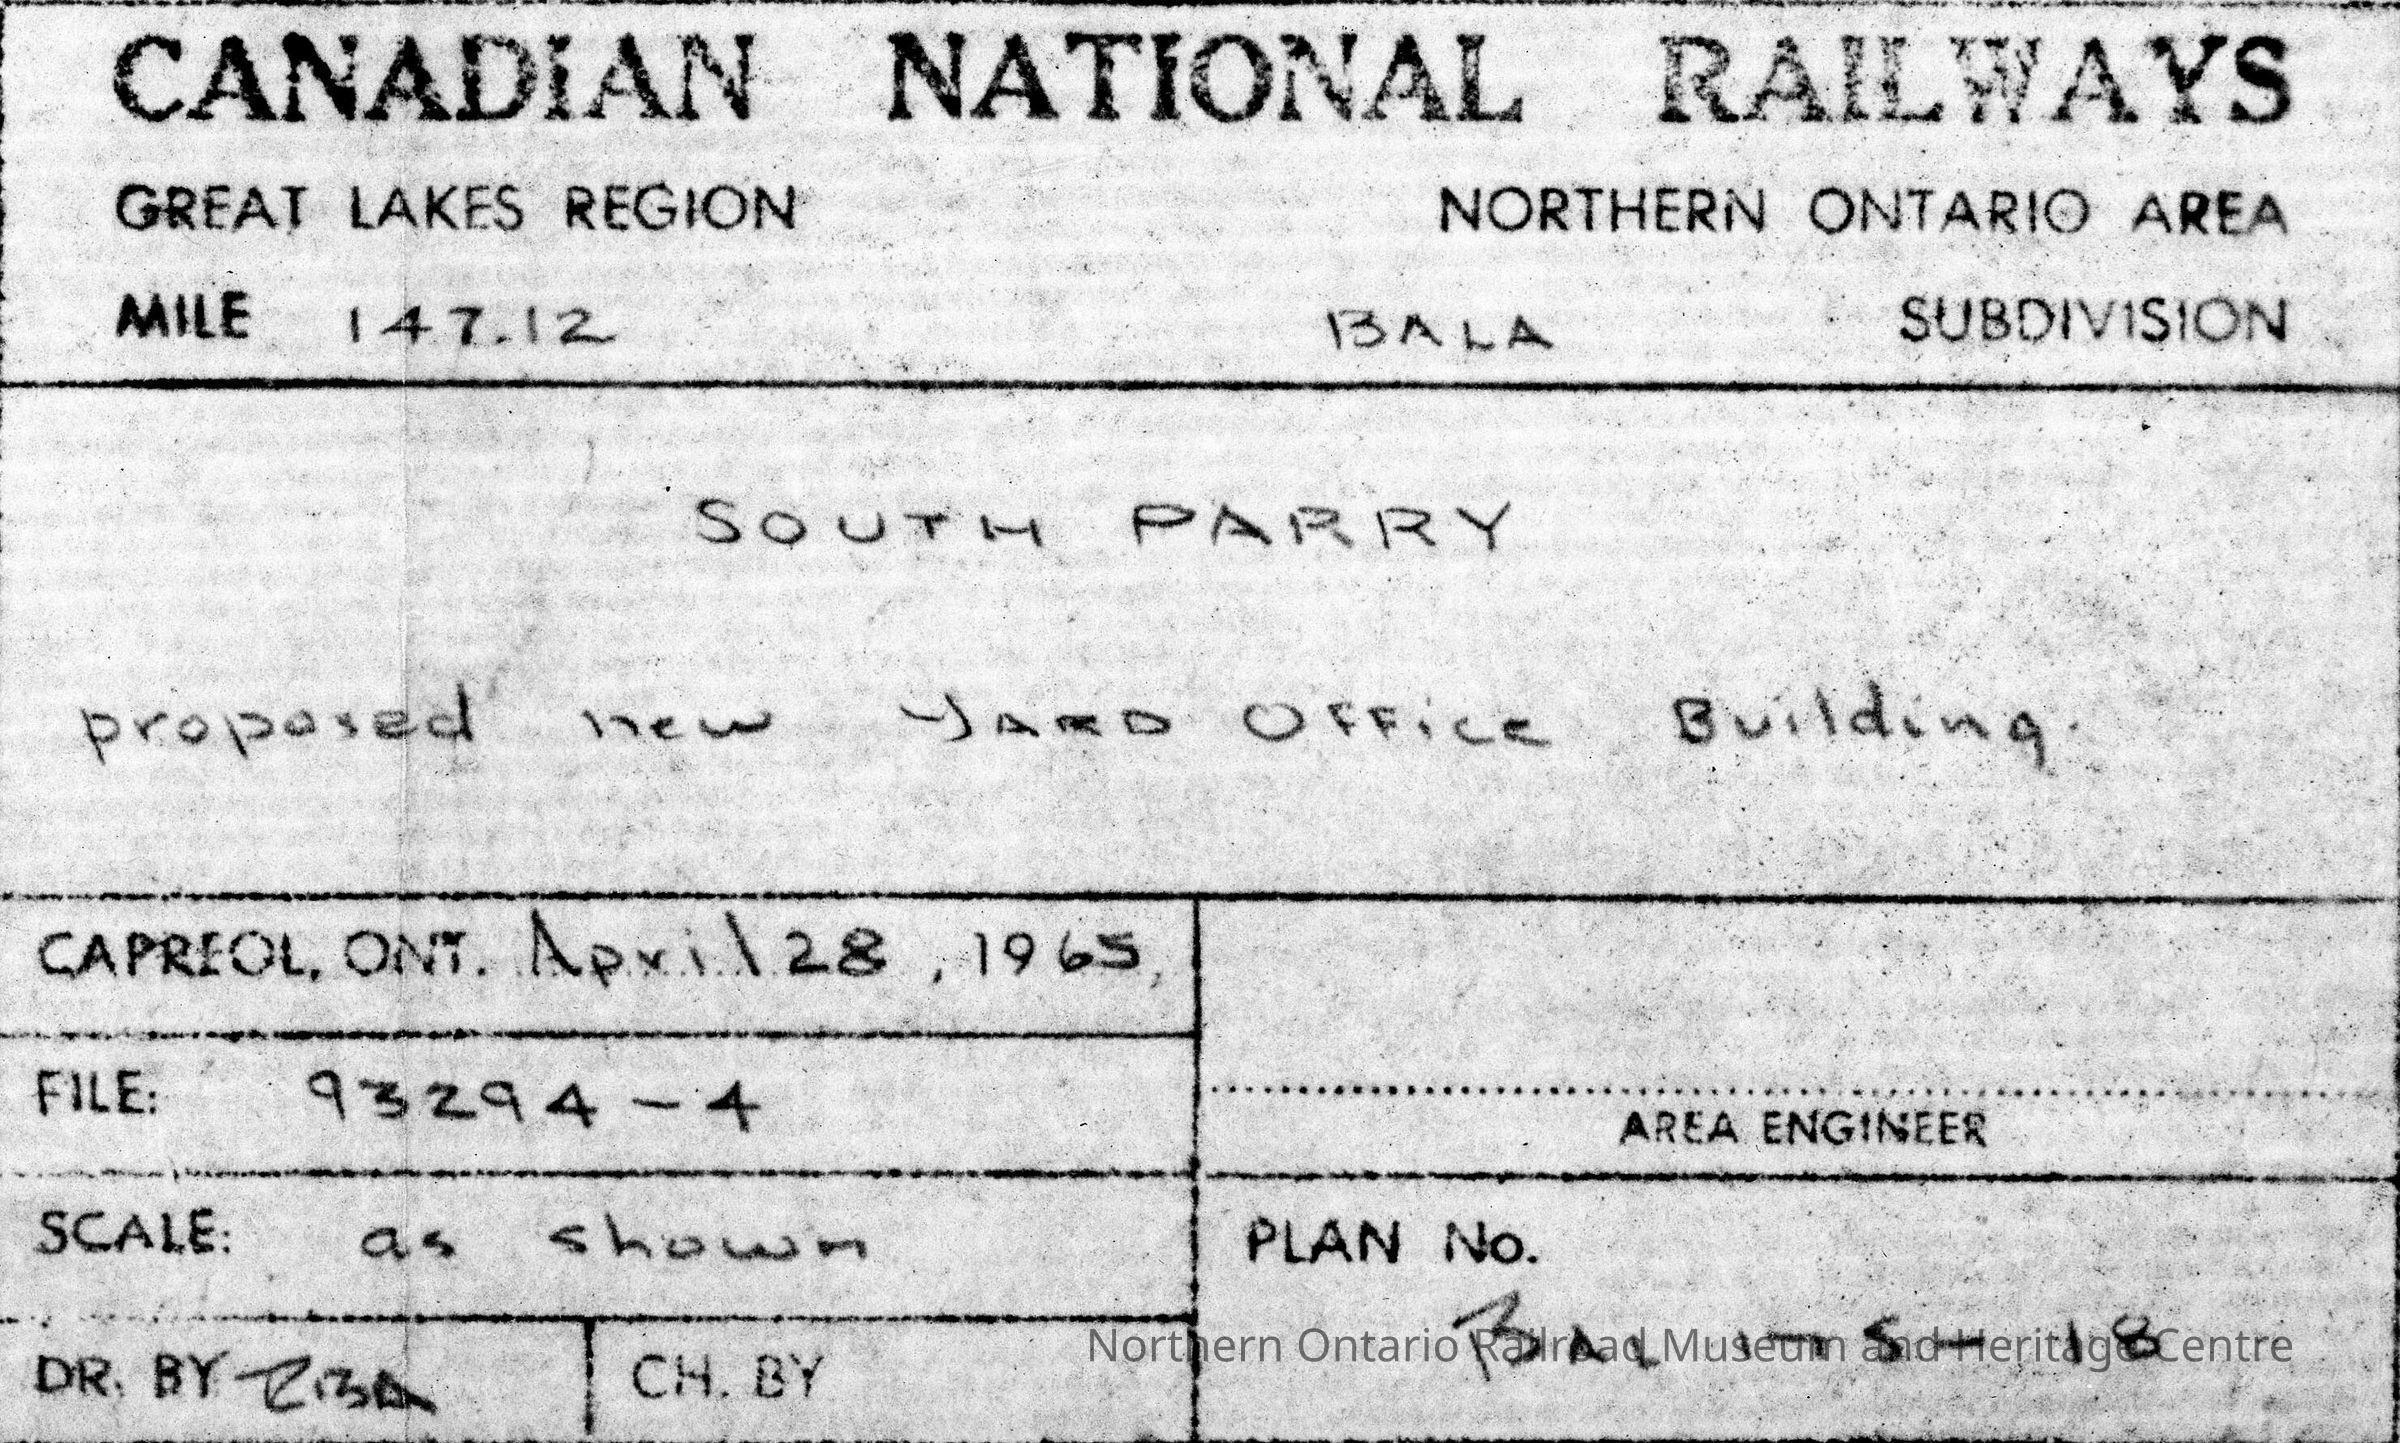 CANADIAN NATIONAL RAILWAYS
GREAT LAKES REGION NORTHERN ONTARIO AREA
MILE 147.12 BALA SUBDIVISION
SOUTH PARRY
proposed new YARD OFFice Building.
CAPREOL, ONT. April 28, 1965,
FILE: 93294-4
AREA ENGINEER
SCALE: as shown
PLAN No.
BAL 1-5-18
DR. BY
CH. BY
Northern Ontario Railroad Museum and Heritage Centre